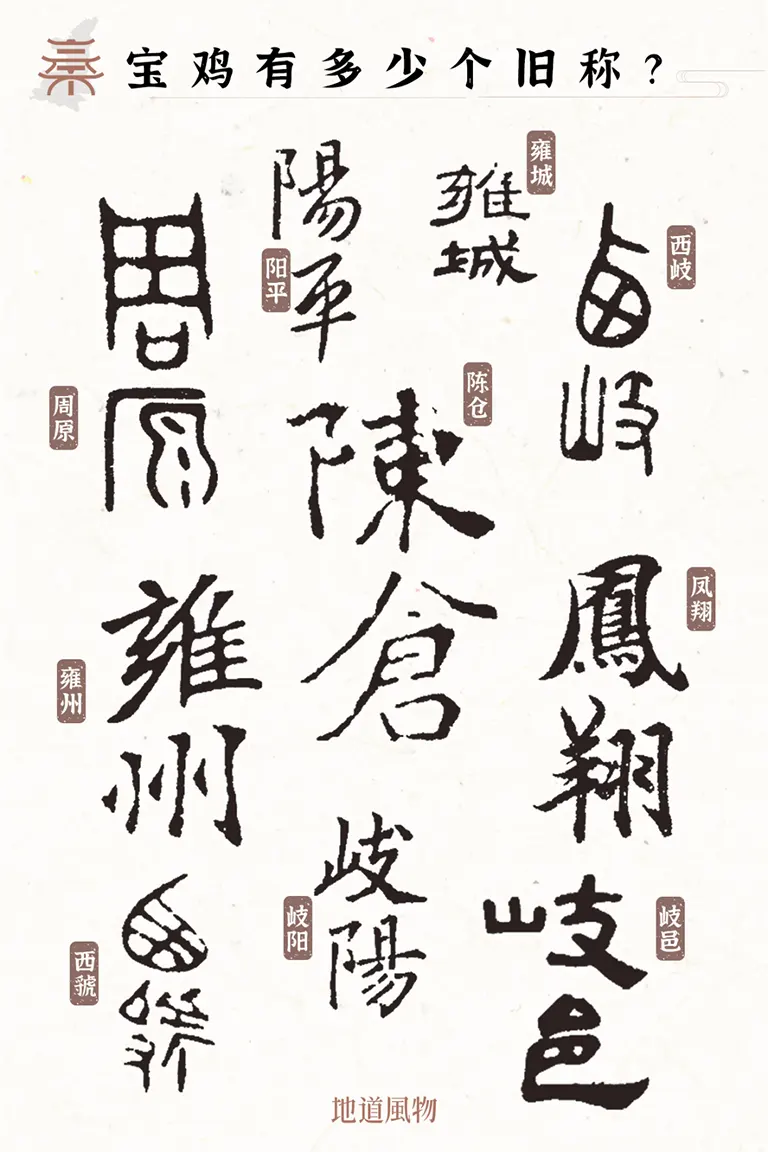 宝鸡有多少个旧称?
周原
周原
陽平
阳平
雍城
雍城
西岐
西岐
陳倉
陈仓
雍州
雍州
鳳翔
凤翔
西虢
西虢
岐陽
岐阳
岐邑
岐邑
地道風物